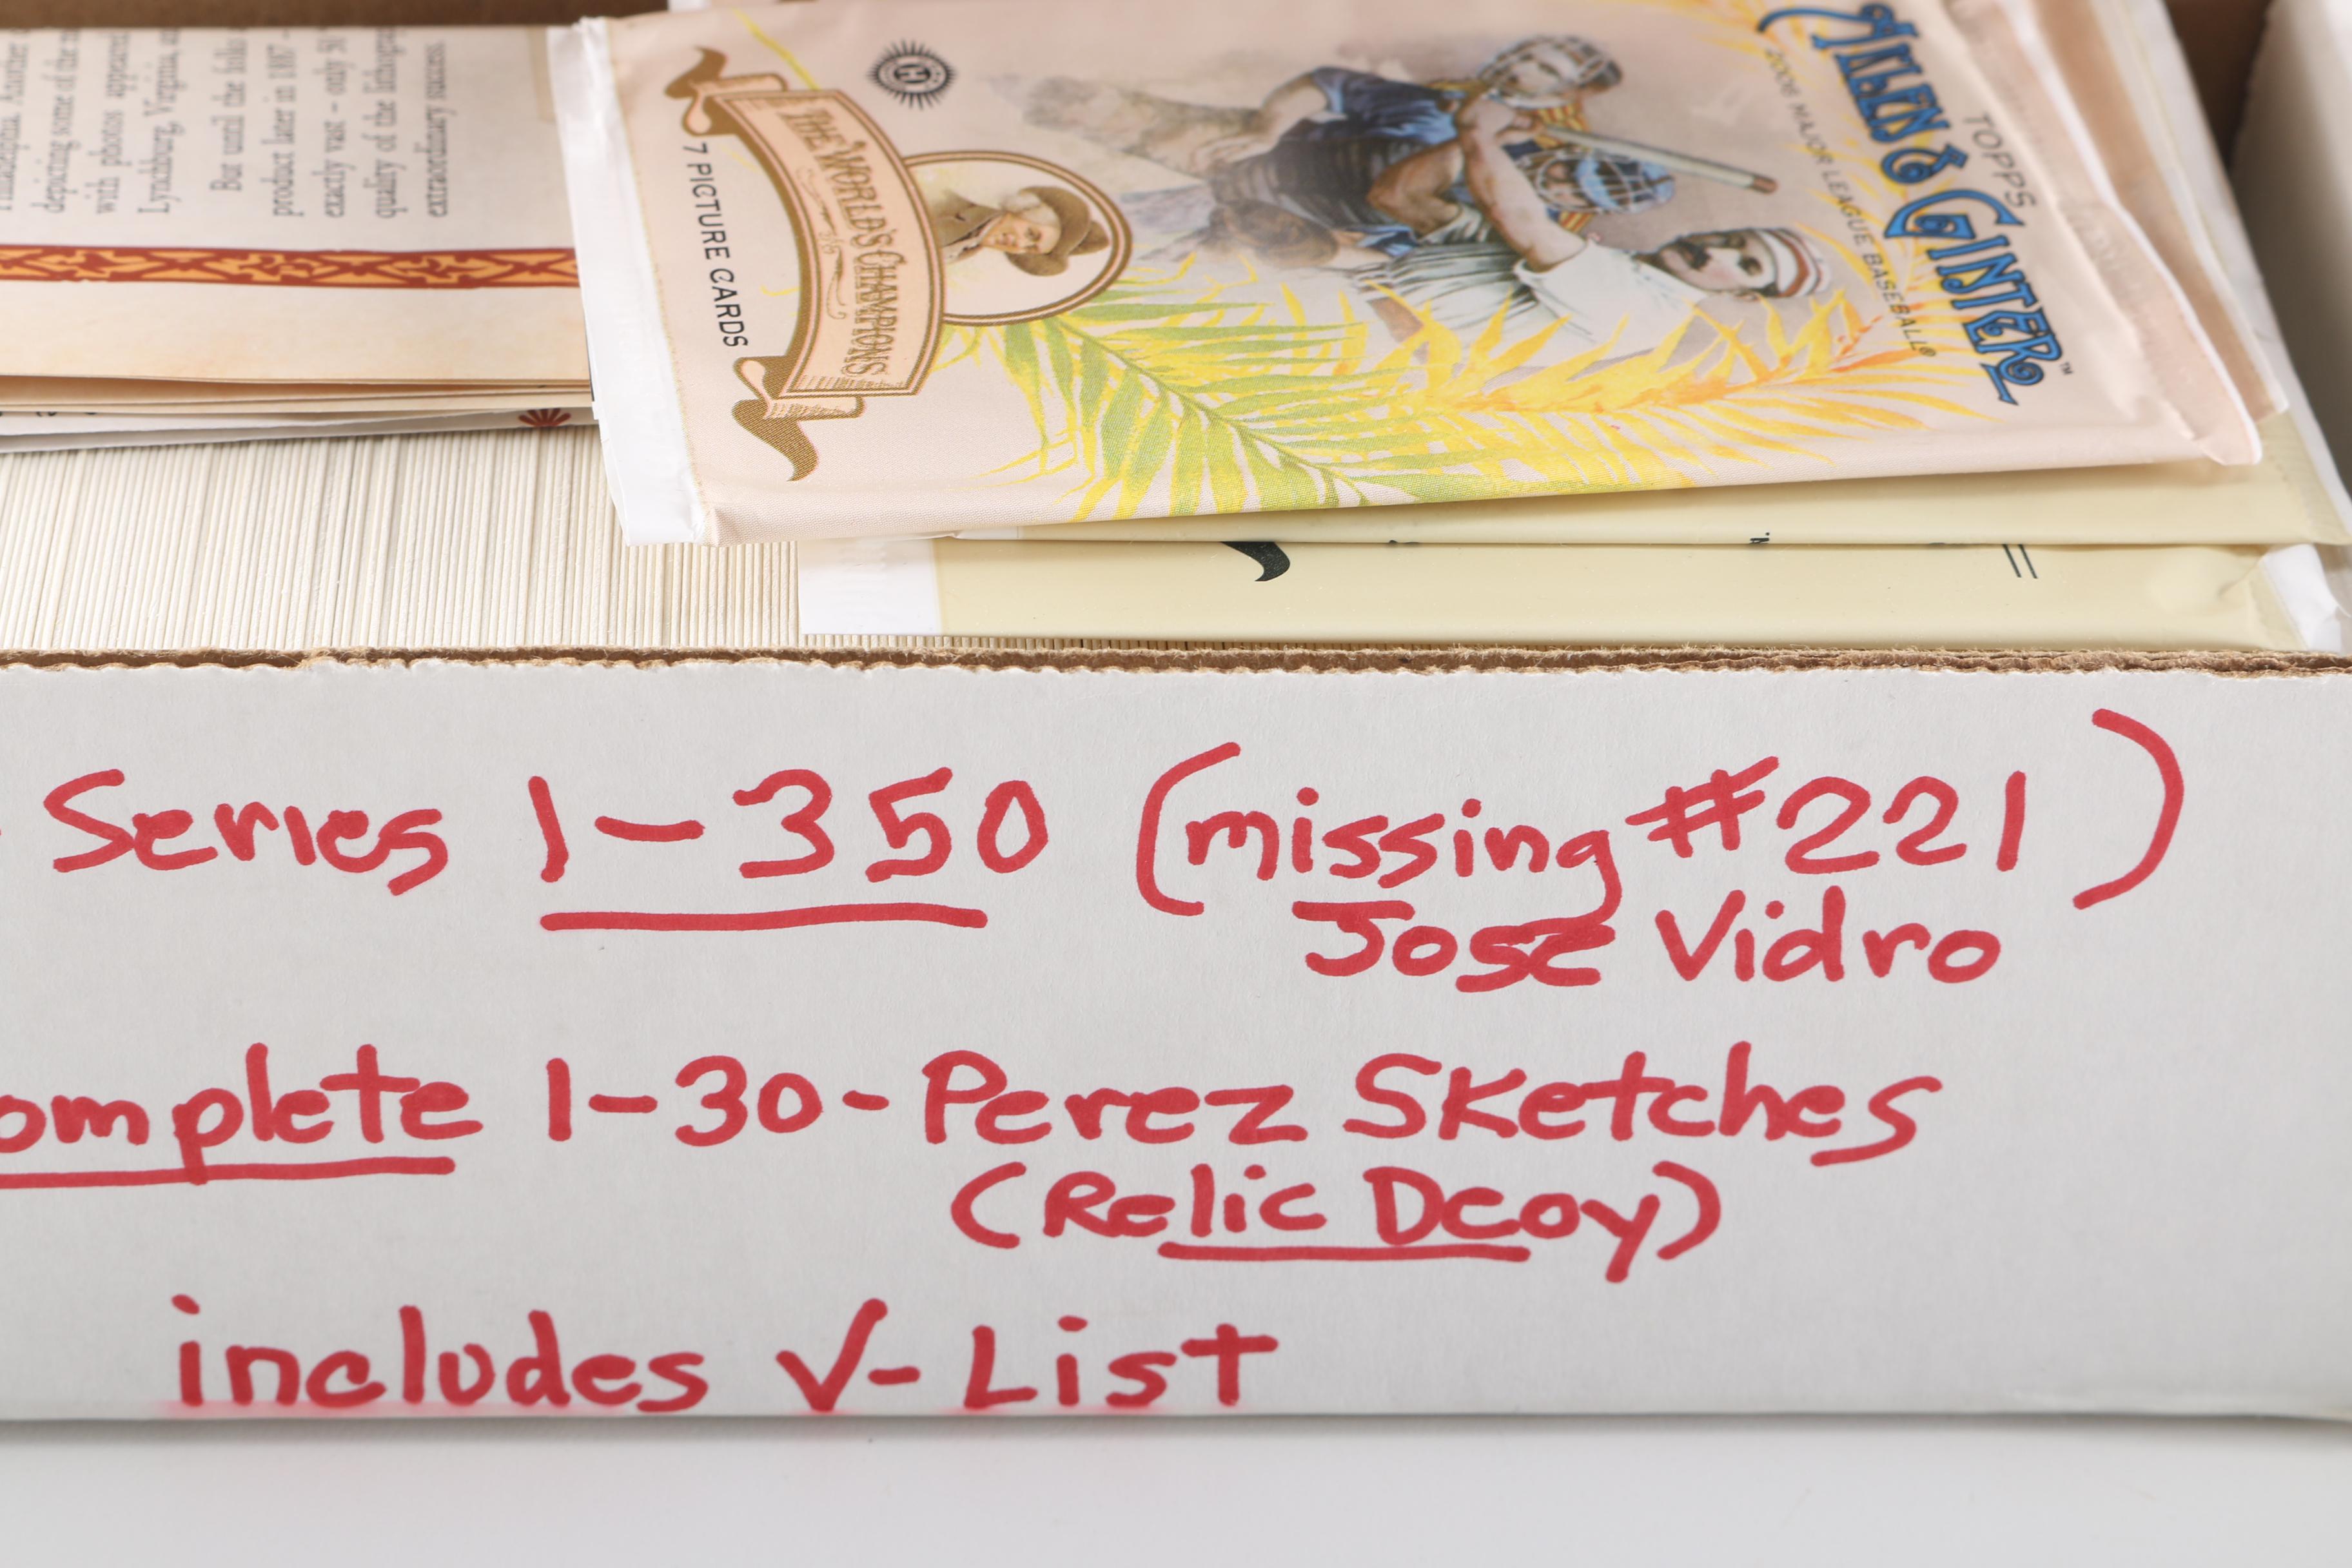 TOPPS
ALLEN & GINTER™
2006 MAJOR LEAGUE BASEBALL®
THE WORLD'S CHAMPIONS
7 PICTURE CARDS
depicting some of the
with photos
Lynchburg, Virginia,
But until the folks
product later in 1887 –
exactly vast – only 50
quality of the lithograph
extraordinary success.
Series 1-350 (missing #221)
Jose Vidro
omplete 1-30-Perez Sketches
(Relic Dcoy)
includes √-List